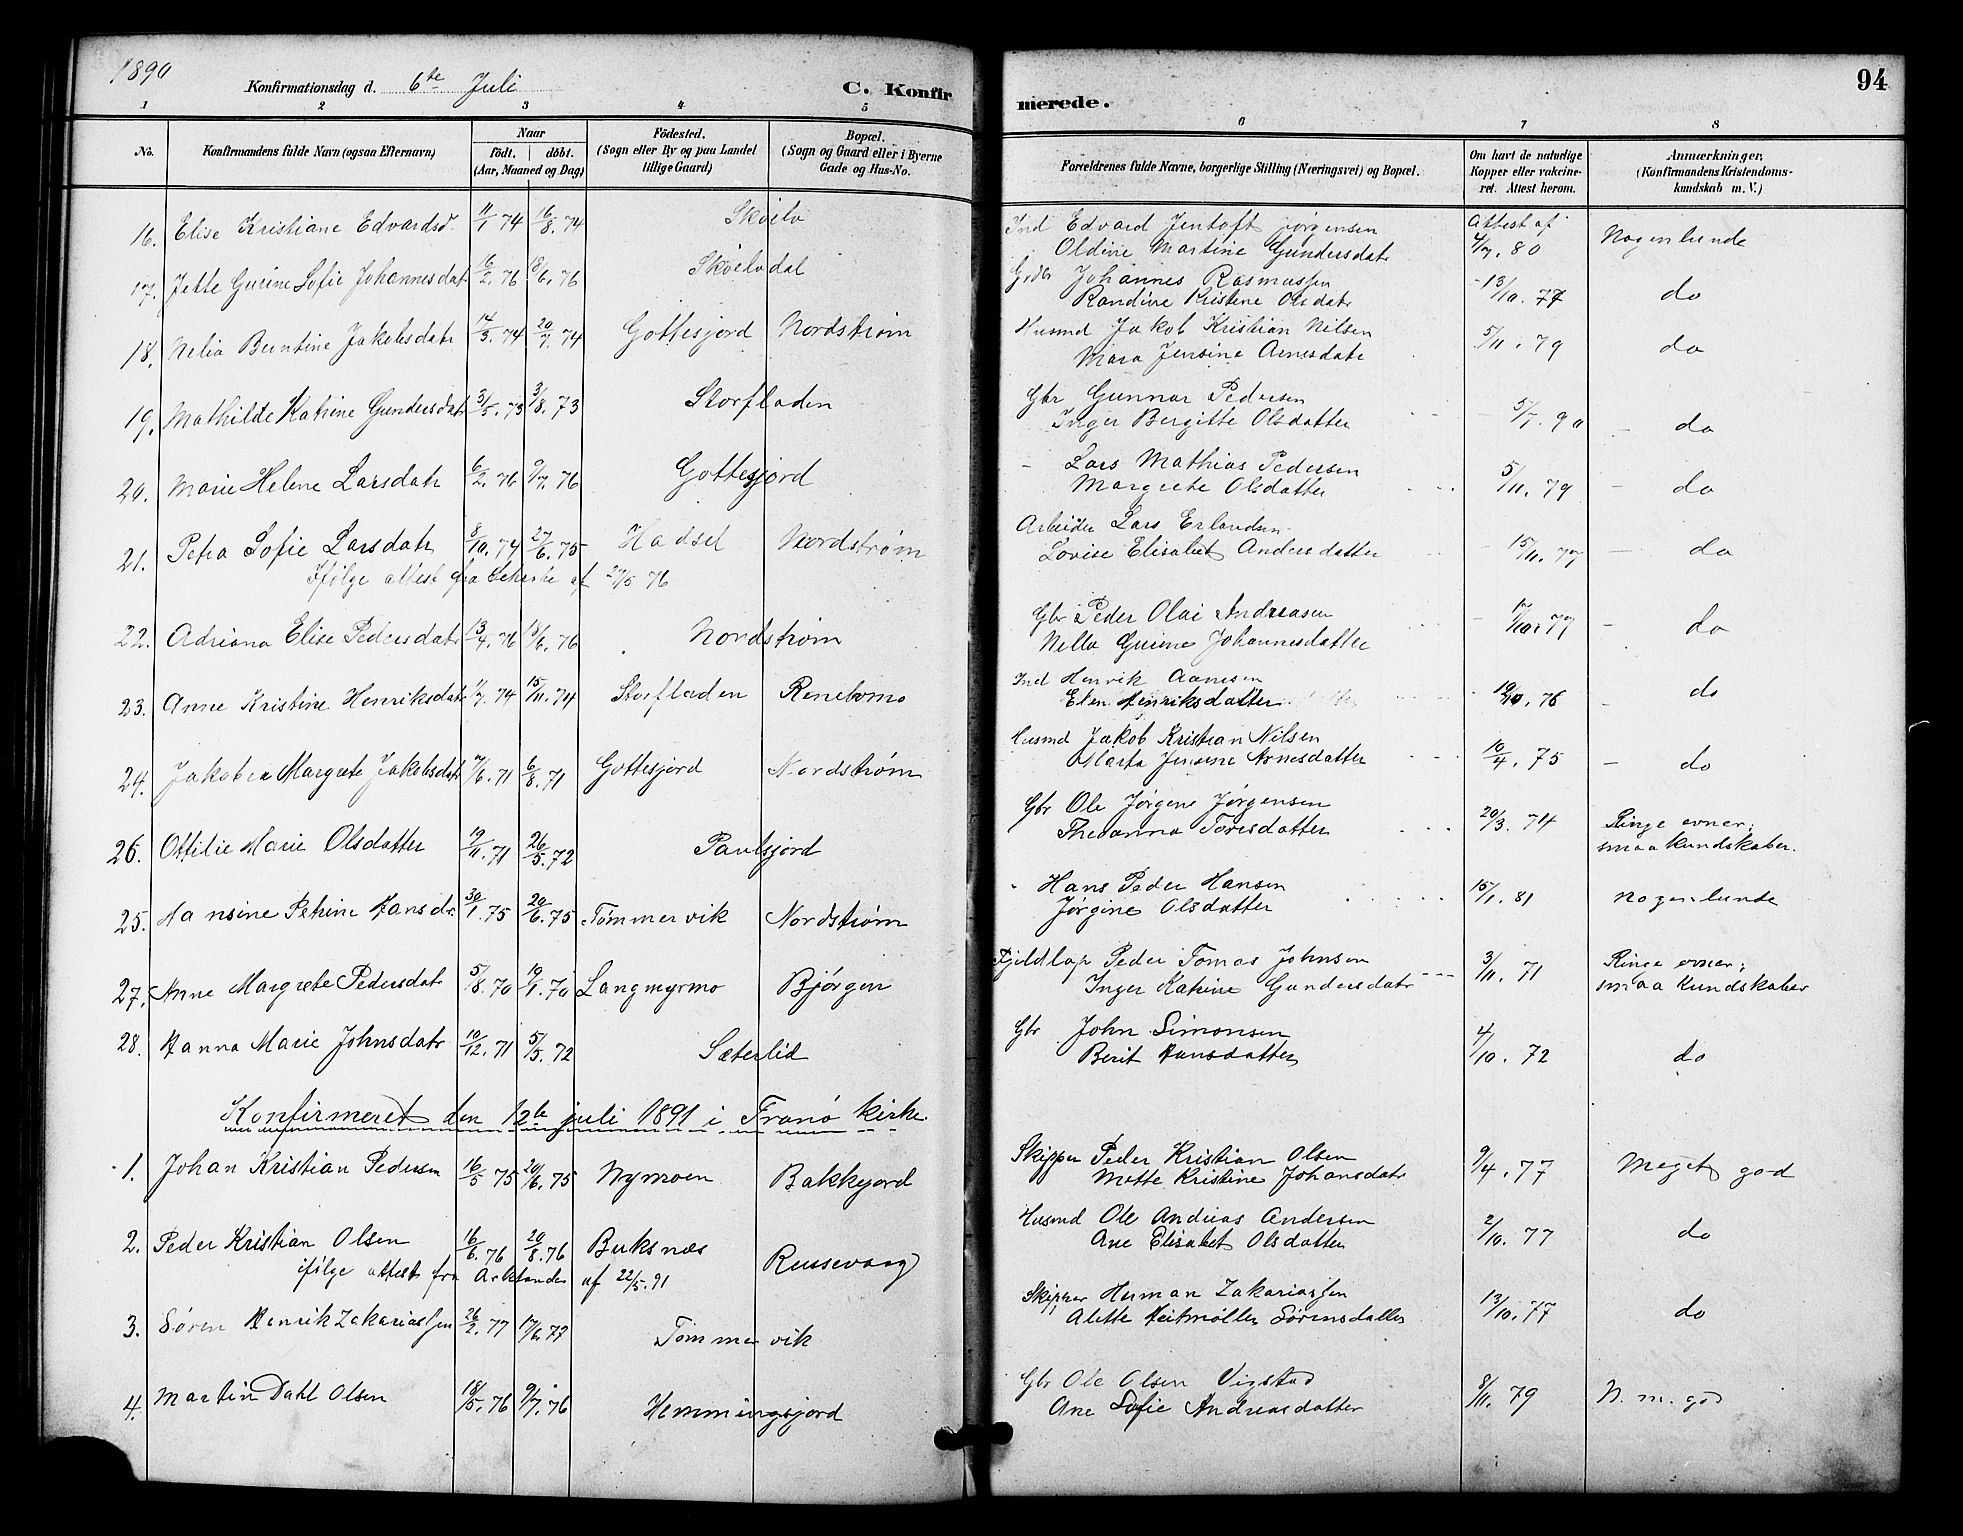 1890
Konfirmationsdag d. 6te Juli
C. Konfirmerede.
94
1 2 3 4 5 6 7 8
No.
Konfirmandens fulde Navn (ogsaa Efternavn)
Naar
födt. | döbt.
(Aar, Maaned og Dag)
Födested.
(Sogn eller By og paa Landet
tillige Gaard)
Bopæl.
(Sogn og Gaard eller i Byerne
Gade og Hus-No.
Forældrenes fulde Navne, borgerlige Stilling (Næringsvei) og Bopæl.
Om havt de naturlige
Kopper eller vakcine-
ret. Attest herom.
Anmærkninger,
(Konfirmandens Kristendoms-
kundskab m. V.)
16. Elise Kristiane Edvardsd. 11/1 74 16/8. 74 Skøelv Ind Edvard Jentoft Jørgensen Attest af
Oldine Martine Gundersdatr 4/7. 80 Nogenlunde
17. Jette Gurine Sofie Johannesdat 6/2. 76 18/6. 76 Skøelvdal Grdbr Johannes Rasmussen
Randine Kristine Olsdatr 13/10. 77 do
18. Nelia Berntine Jakobsdatr 14/3. 74 20/7. 74 Gottesjord Nordstrøm Husmd Jakob Kristian Nilsen
Mara Jensine Arnesdatr 5/11. 79 do
19. Mathilde Katrine Gundersdatr 3/5. 73 3/8. 73 Storfladen Gbr Gunnar Pedersen
Inger Bergitte Olsdatter 5/7. 90 do
20. Marie Helene Larsdatr 6/2. 76 9/7. 76 Gottesjord - Lars Mathias Pedersen
Margrete Olsdatter 5/11. 79 do
21. Petra Sofie Larsdatr 8/10. 74 27/6. 75 Hadsel Nordstrøm Arbeider Lars Erlandsen
Lovise Elisabet Andersdatter 15/11. 77 do
Ifølge attest fra af 27/5 76
22. Adriana Elise Pedersdatr 13/4. 76 18/6. 76 Nordstrøm Gbr Peder Olai Andreasen
Nella Gurine Johannesdatter do
23. Anne Kristine Henriksdatr 74 15/11. 74 Storfladen Renelvmo Ind Henrik Aanesen
Elen Henriksdatter 76 do
24. Jakobia Margrete Jakobsdatr 7/6. 71 6/8. 71 Gottesjord Nordstrøm Husmd Jakob Kristian Nilsen
Marta Jensine Arnesdatter 10/4. 75 do
26. Ottilie Marie Olsdatter 19/11. 71 26/5. 72 Paulsjord Gbr Ole Jørgene Jørgensen
Theanna Toresdatter 20/3. 74 Ringe evner;
smaa kundskaber.
25. Hansine Petrine Hansdr. 30/1. 75 20/6. 75 Tømmervik Nordstrøm Hans Peder Hansen
Jørgine Olsdatter 15/1. 81 nogenlunde
27. Anne Margrete Pedersdatr 5/8. 70 19/1. 70 Langmyrmo Bjørgen Fjeldlap Peder Tomas Johnsen
Inger Katrine Gundersdatr 3/11. 71 Ringe evner;
smaa kundskaber
28. Hanna Marie Johnsdatr 10/12. 71 5/5. 72 Sæterlid Gbr John Simonsen
Berit Hansdatter 4/10. 72 do
Konfirmeret den 12te juli 1891 i Tranø kirke.
1. Johan Kristian Pedersen 16/5 75 20/6. 75 Nymoen Bakkejord Skipper Peder Kristian Olsen
Mette Kristine Johansdatr 9/4. 77 Meget god
2. Peder Kristian Olsen 16/6. 76 20/8. 76 Buksnæs Russevaag Husmd Ole Andreas Andersen
Ane Elisabet Olsdatter 2/10. 77 do
ifølge attest fra af 22/5. 91
3. Søren Henrik Zakariassen 26/2. 77 17/6. 77 Tømmervik Skipper Herman Zakariassen
Alette Heitmøller Sørensdatter 13/10. 77 do
4. Martin Dahl Olsen 18/5. 76 9/7. 76 Hemmingsjord Gbr Ole Olsen Vigstad
Ane Sofie Andreasdatter 8/11. 79 N. m. god